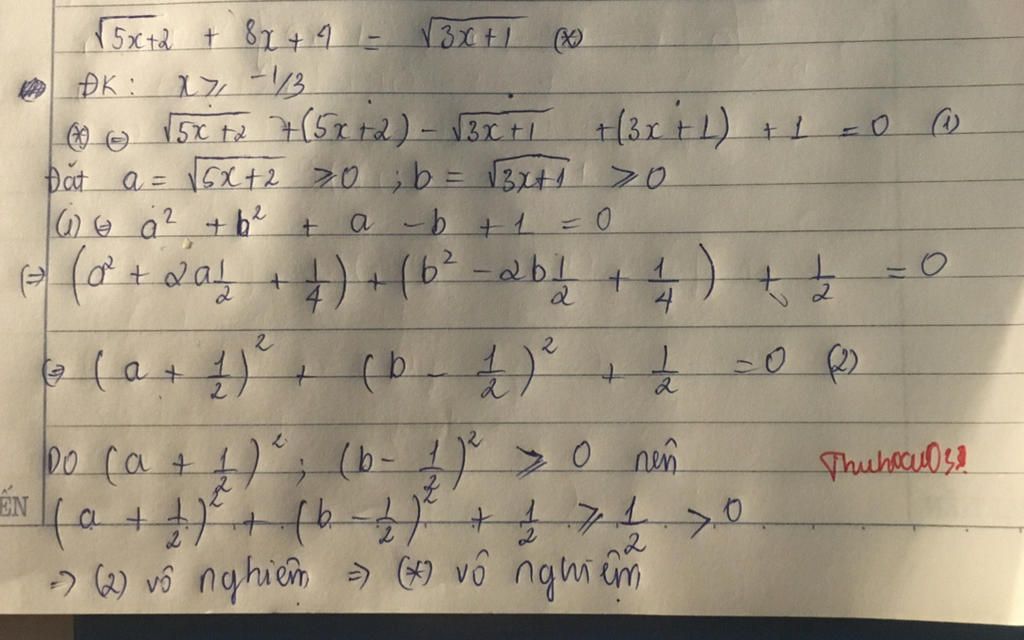 √5x+2 + 8x + 4 = √3x+1 (*)
ĐK: x ≥ -1/3
(*) ⇔ √5x+2 + (5x+2) - √3x+1 + (3x+1) + 1 = 0 (1)
Đặt a = √5x+2 ≥ 0 ; b = √3x+1 ≥ 0
(1) ⇔ a² + b² + a - b + 1 = 0
⇔ (a² + 2a 1/2 + 1/4) + (b² - 2b 1/2 + 1/4) + 1/2 = 0
⇔ (a + 1/2)² + (b - 1/2)² + 1/2 = 0 (2)
Do (a + 1/2)² ; (b - 1/2)² ≥ 0 nên
ẾN (a + 1/2)² + (b - 1/2)² + 1/2 ≥ 1/2 > 0
⇒ (2) vô nghiệm ⇒ (*) vô nghiệm